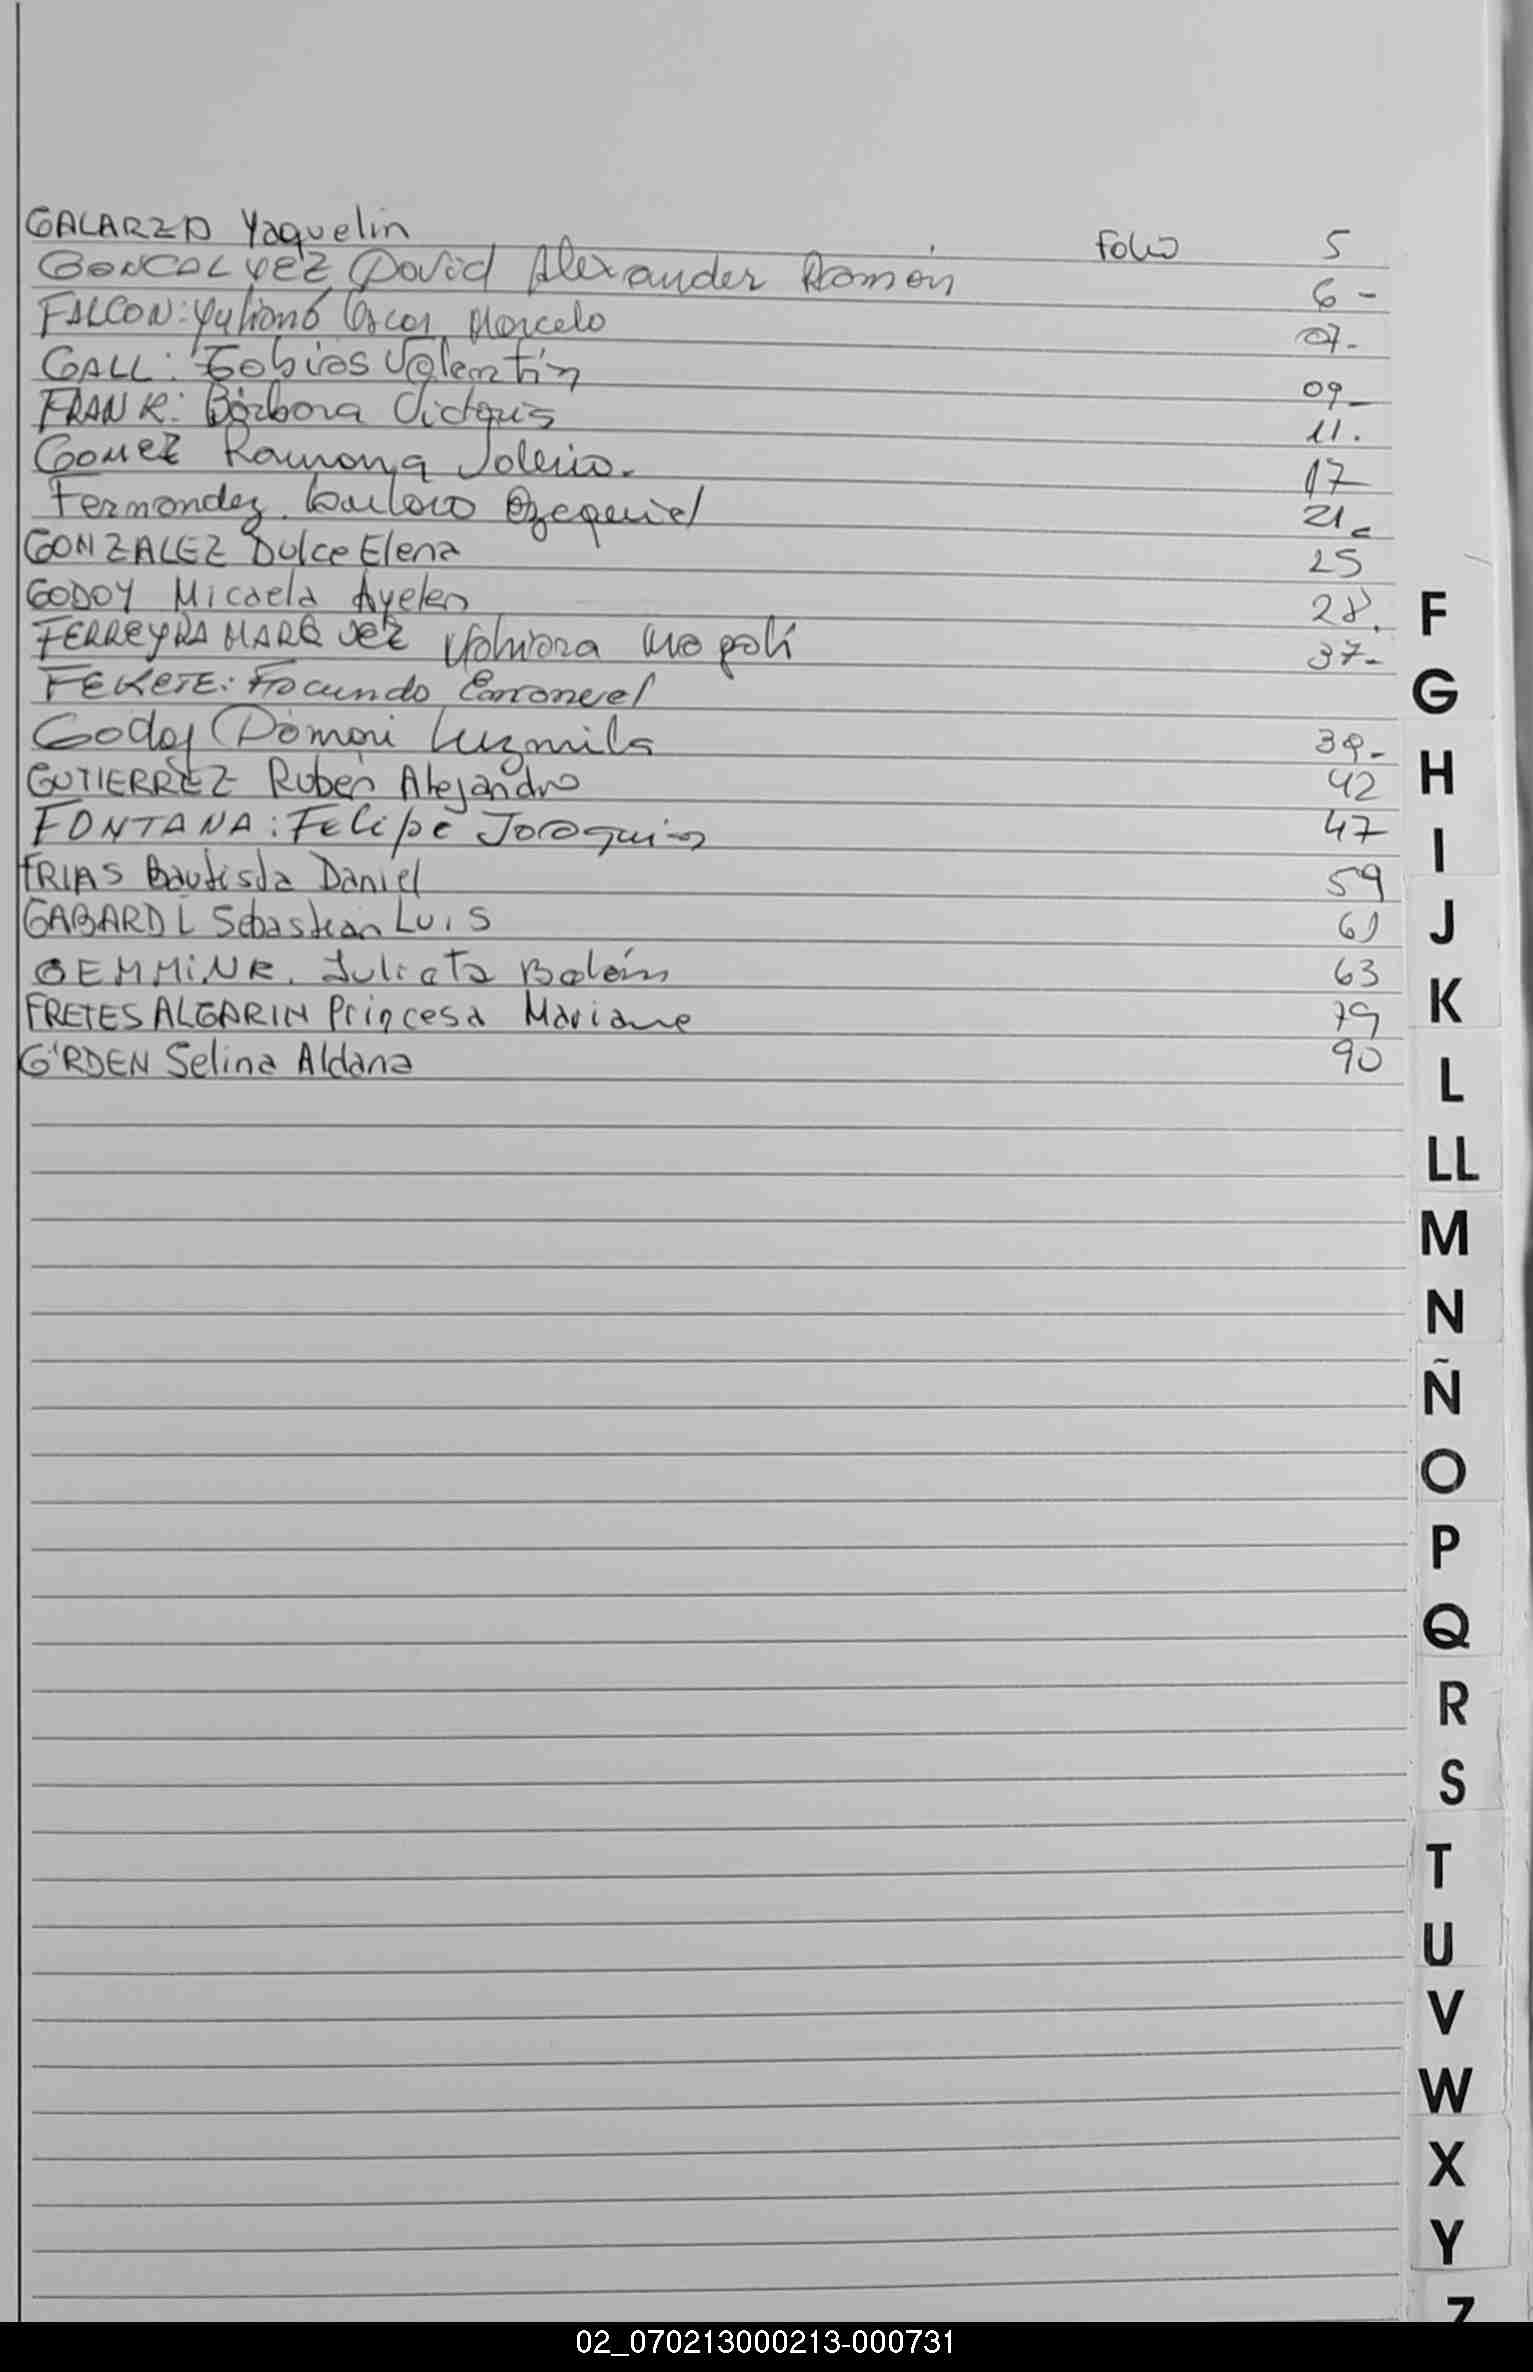 GALARZA Yaquelin Folio 5
GONCALVEZ David Alexander Ramón 6 -
FALCON: Yulianó Oscar Marcelo 07-
GALL: Tobias Valentín 09-
FRANK: Bárbara Victoria 11.
GOMEZ Ramona 17
Fernandez Ezequiel 21-
GONZALEZ Dulce Elena 25
GODOY Micaela Ayelen 28.
FERREYRA MARQUEZ 37-
FEKETE: Facundo Emanuel
Godoy Luzmila 39-
GUTIERREZ Rubén Alejandro 42
FONTANA: Felipe Joaquin 47
FRIAS Bautista Daniel 59
GABARDI Sebastian Luis 61
GEMMINK. Julieta Belén 63
FRETES ALGARIN Princesa Mariane 79
GÍRDEN Selina Aldana 90
F
G
H
I
J
K
L
LL
M
N
Ñ
O
P
Q
R
S
T
U
V
W
X
Y
Z
02_070213000213-000731